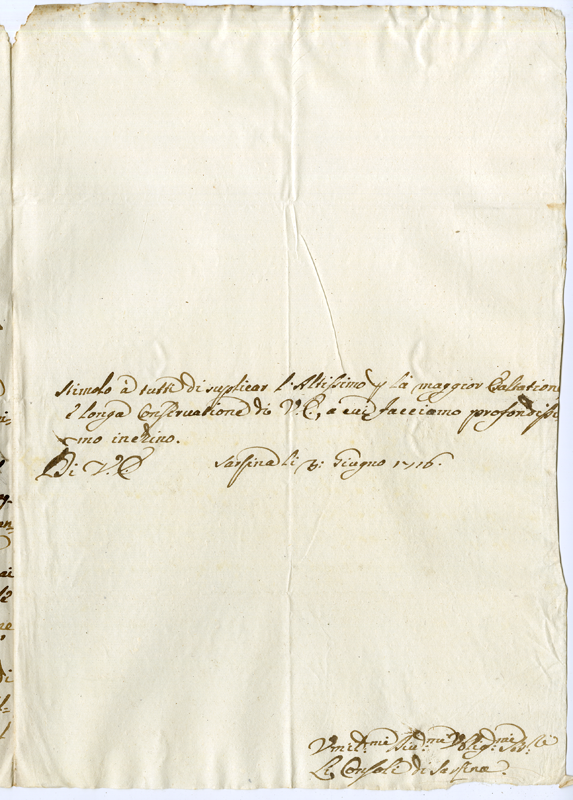 stimolo à tutti di suplicar l'Altissimo p la maggior Esaltatione
è longa Conservatione di V. E., a cui facciamo profondissi
mo inchino.
Di V. E. Sarsina li 3: Giugno 1716.
Li Consoli di Sarsina.